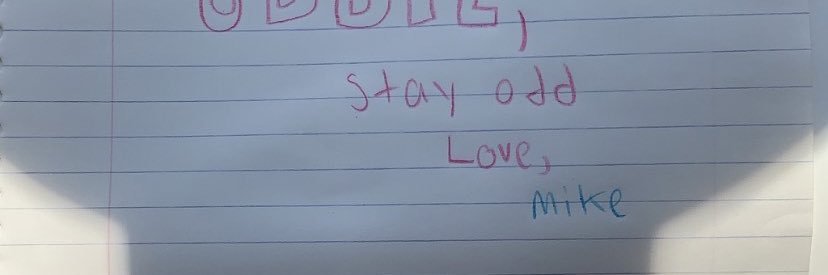 Stay odd
Love,
Mike